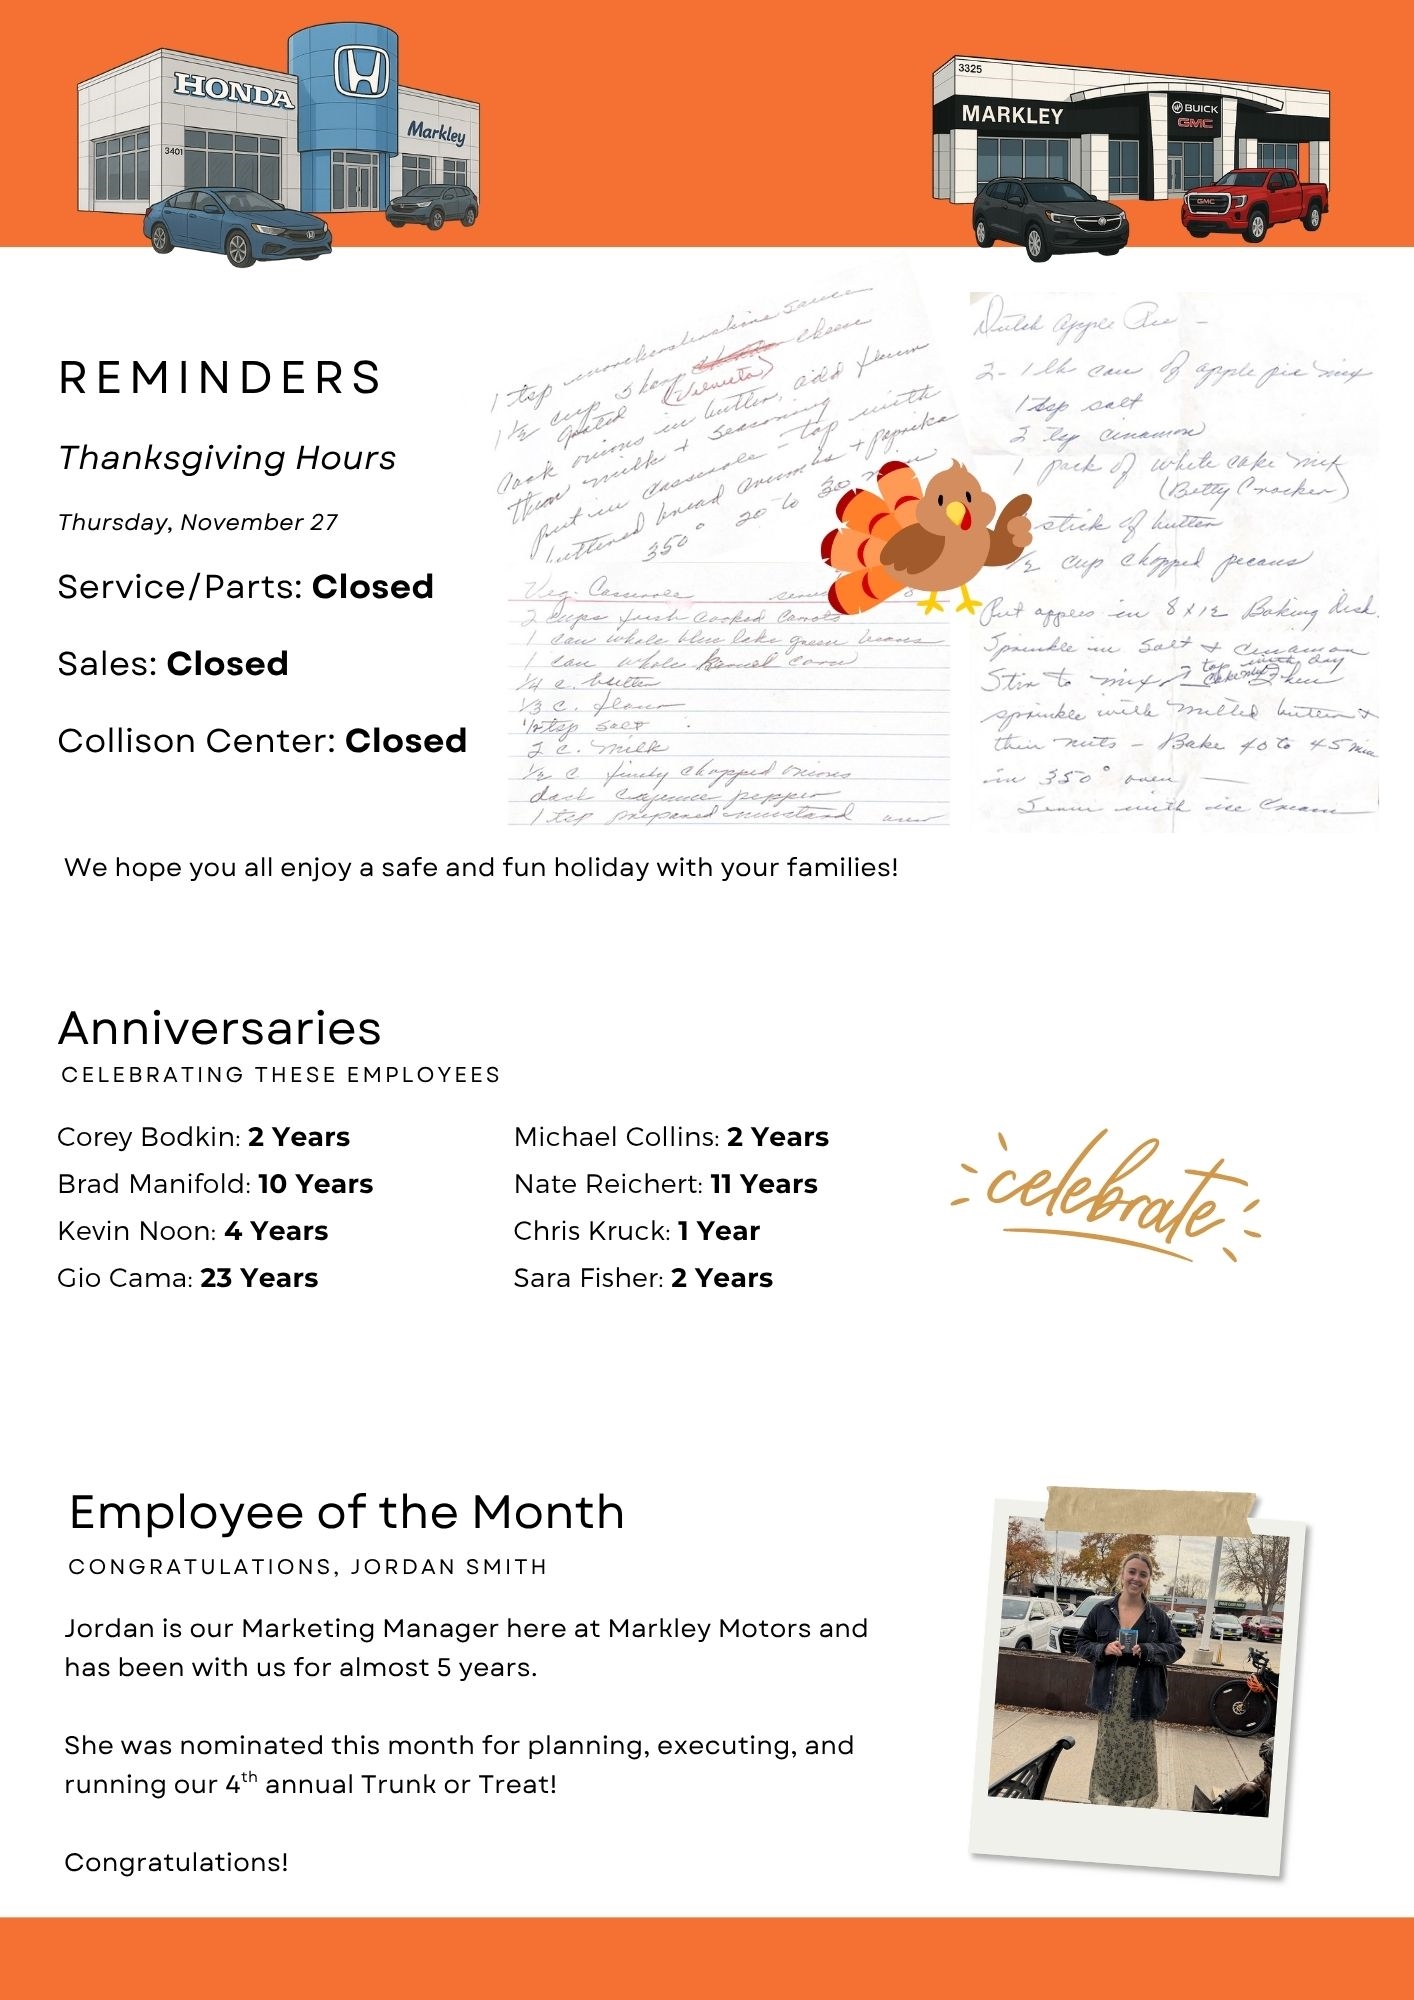 HONDA
Markley
3401
3325
MARKLEY
BUICK
GMC
GMC
REMINDERS
Thanksgiving Hours
Thursday, November 27
Service/Parts: Closed
Sales: Closed
Collison Center: Closed
1 tsp sauce
1 1/2 cup sharp cheese
grated (Velveeta)
Cook onions in butter, add flour
then milk + seasoning
Put in casserole - top with
buttered bread crumbs + paprika
350° 20 to 30 min
Veg. Casserole
2 cups fresh cooked carrots
1 can whole blue lake green beans
1 can whole kernel corn
1/4 c. butter
1/3 c. flour
1/2 tsp salt
2 c. milk
1/2 c finely chopped onions
dash cayenne pepper
1 tsp prepared mustard over
Dutch Apple Pie -
2 - 1 lb can of apple pie mix
1 tsp salt
2 tsp cinamon
1 pack of white cake mix
(Betty Crocker)
stick of butter
1/2 cup chopped pecans
Put apples in 8 x 12 Baking dish.
Sprinkle in salt + cinamon
Stir to mix top with dry
cake mix then
sprinkle with melted butter +
then nuts - Bake 40 to 45 min
in 350° oven
Serve with ice cream
We hope you all enjoy a safe and fun holiday with your families!
Anniversaries
CELEBRATING THESE EMPLOYEES
Corey Bodkin: 2 Years
Brad Manifold: 10 Years
Kevin Noon: 4 Years
Gio Cama: 23 Years
Michael Collins: 2 Years
Nate Reichert: 11 Years
Chris Kruck: 1 Year
Sara Fisher: 2 Years
celebrate
Employee of the Month
CONGRATULATIONS, JORDAN SMITH
Jordan is our Marketing Manager here at Markley Motors and
has been with us for almost 5 years.
She was nominated this month for planning, executing, and
running our 4th annual Trunk or Treat!
Congratulations!